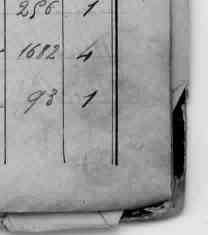 256 1
1682 4
93 1